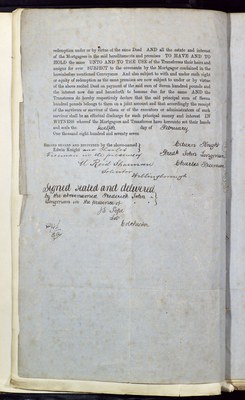 redemption under or by virtue of the same Deed AND all the estate and interest
of the Mortgagee in the said hereditaments and premises TO HAVE AND TO
HOLD the same UNTO AND TO THE USE of the Transferees their heirs and
assigns for ever SUBJECT to the covenants by the Mortgagor contained in the
hereinbefore mentioned Conveyance And also subject to such and under such right
or equity of redemption as the same premises are now subject to under or by virtue
of the above recited Deed on payment of the said sum of Seven hundred pounds and
the interest now due and henceforth to become due for the same AND the
Transferees do hereby respectively declare that the said principal sum of Seven
hundred pounds belongs to them on a joint account and that accordingly the receipt
of the survivors or survivor of them or of the executors or administrators of such
survivor shall be an effectual discharge for such principal money and interest IN
WITNESS whereof the Mortgagee and Transferees have hereunto set their hands
and seals the twelfth day of February
One thousand eight hundred and seventy seven.
SIGNED SEALED AND DELIVERED by the abovenamed
Edwin Knight and Charles
Freeman in the presence of
Edwin Knight
Fredk John
Charles Freeman
Sharman
Solicitor
Wellingborough
Signed sealed and delivered
by the abovenamed Frederick John
in the presence of
Colchester